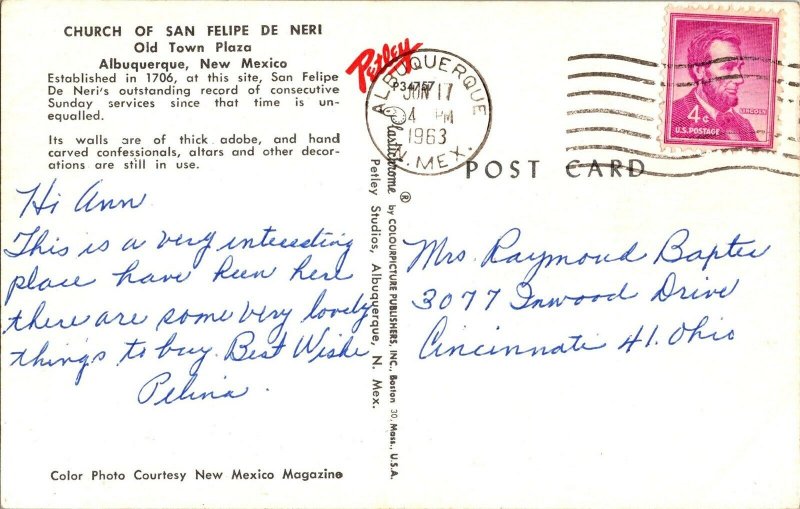 CHURCH OF SAN FELIPE DE NERI
Old Town Plaza
Albuquerque, New Mexico
Established in 1706, at this site, San Felipe
De Neri's outstanding record of consecutive
Sunday services since that time is un-
equalled.
Its walls are of thick adobe, and hand
carved confessionals, altars and other decor-
ations are still in use.
Hi Ann
This is a very interesting
place have been here
there are some very lovely
things to buy. Best Wishe
Pelina.
Color Photo Courtesy New Mexico Magazine
Petley
P34757
Plastichrome ® by COLOURPICTURE PUBLISHERS, INC., Boston 30, Mass., U.S.A.
Petley Studios, Albuquerque, N. Mex.
ALBUQUERQUE
JUN 17
4 PM
1963
N. MEX.
POST CARD
4¢
LINCOLN
U.S. POSTAGE
Mrs. Raymond Bapter
3077 Inwood Drive
Cincinnati 41. Ohio